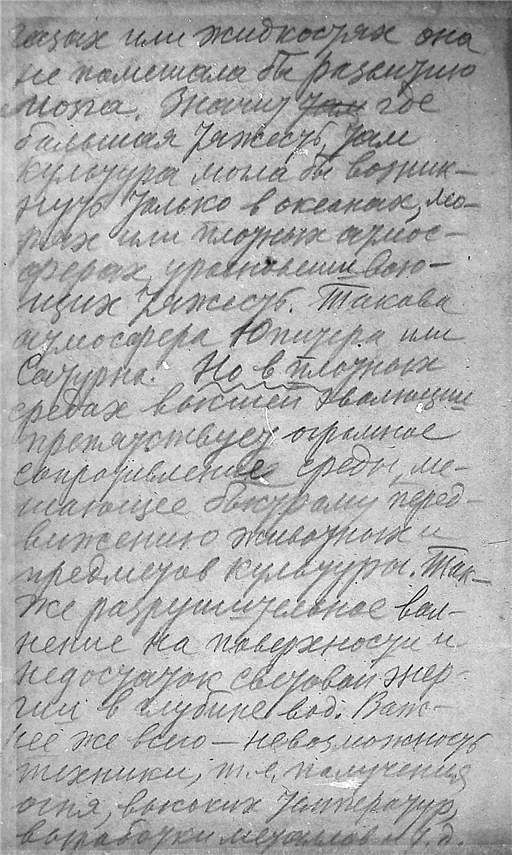 газах или жидкостях она
не помешала бы развитию
мозга. Значит там где
большая тяжесть, там
культура могла бы возник-
нуть только в океанах, мо-
рях или плотных атмос-
ферах, уравновешиваю-
щих тяжесть. Такова
атмосфера Юпитера или
Сатурна. Но в плотных
средах высшей эволюции
препятствует огромное
сопротивление среды, ме-
шающее быстрому перед-
вижению животных и
предметов культуры. Так-
же разрушительное вол-
нение на поверхности и
недостаток световой энер-
гии в глубине вод. Важ-
нее же всего — невозможность
техники, т.е. получения
огня, высоких температур,
выработки металлов и т.д.